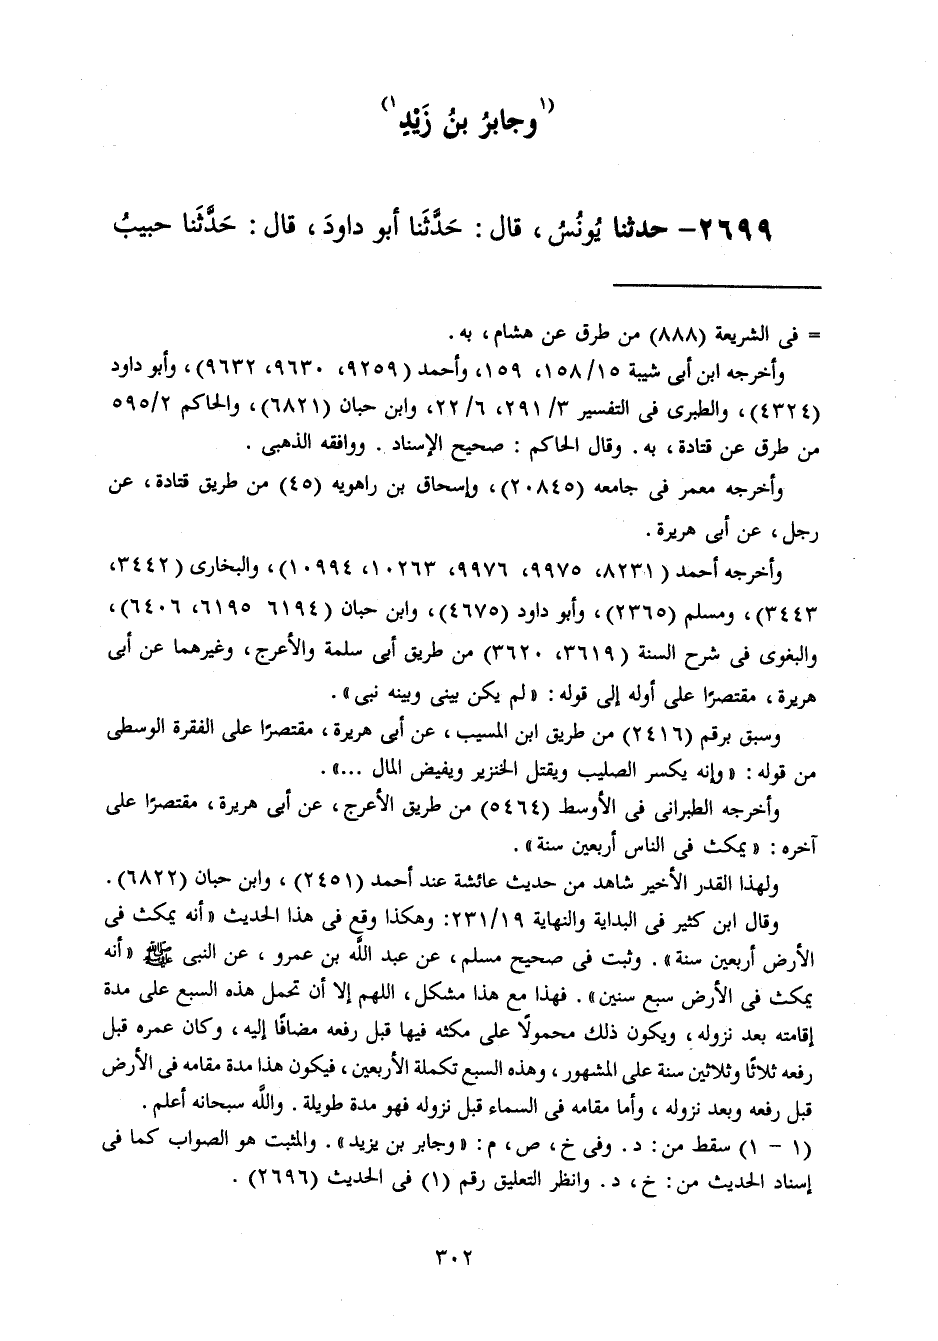 (١وجابرُ بنُ زَيْدٍ١)
٢٦٩٩- حدثنا يُونُسُ، قال: حَدَّثَنا أبو داودَ، قال: حَدَّثَنا حبيبُ
= فى الشريعة (٨٨٨) من طرق عن هشام، به.
وأخرجه ابن أبى شيبة ١٥/ ١٥٨، ١٥٩، وأحمد (٩٢٥٩، ٩٦٣٠، ٩٦٣٢)، وأبو داود
(٤٣٢٤)، والطبرى فى التفسير ٣/ ٢٩١، ٦/ ٢٢، وابن حبان (٦٨٢١)، والحاكم ٢/ ٥٩٥
من طرق عن قتادة، به. وقال الحاكم: صحيح الإسناد. ووافقه الذهبى.
وأخرجه معمر فى جامعه (٢٠٨٤٥)، وإسحاق بن راهويه (٤٥) من طريق قتادة، عن
رجل، عن أبى هريرة.
وأخرجه أحمد (٨٢٣١، ٩٩٧٥، ٩٩٧٦، ١٠٢٦٣، ١٠٩٩٤)، والبخارى (٣٤٤٢،
٣٤٤٣)، ومسلم (٢٣٦٥)، وأبو داود (٤٦٧٥)، وابن حبان (٦١٩٤ ٦١٩٥، ٦٤٠٦)،
والبغوى فى شرح السنة (٣٦١٩، ٣٦٢٠) من طريق أبى سلمة والأعرج، وغيرهما عن أبى
هريرة، مقتصرًا على أوله إلى قوله: «لم يكن بينى وبينه نبى».
وسبق برقم (٢٤١٦) من طريق ابن المسيب، عن أبى هريرة، مقتصرًا على الفقرة الوسطى
من قوله: «وإنه يكسر الصليب ويقتل الخنزير ويفيض المال ...».
وأخرجه الطبرانى فى الأوسط (٥٤٦٤) من طريق الأعرج، عن أبى هريرة، مقتصرًا على
آخره: «يمكث فى الناس أربعين سنة».
ولهذا القدر الأخير شاهد من حديث عائشة عند أحمد (٢٤٥١)، وابن حبان (٦٨٢٢).
وقال ابن كثير فى البداية والنهاية ١٩/ ٢٣١: وهكذا وقع فى هذا الحديث «أنه يمكث فى
الأرض أربعين سنة». وثبت فى صحيح مسلم، عن عبد اللَّه بن عمرو، عن النبى ﷺ «أنه
يمكث فى الأرض سبع سنين». فهذا مع هذا مشكل، اللهم إلا أن تحمل هذه السبع على مدة
إقامته بعد نزوله، ويكون ذلك محمولًا على مكثه فيها قبل رفعه مضافًا إليه، وكان عمره قبل
رفعه ثلاثًا وثلاثين سنة على المشهور، وهذه السبع تكملة الأربعين، فيكون هذا مدة مقامه فى الأرض
قبل رفعه وبعد نزوله، وأما مقامه فى السماء قبل نزوله فهو مدة طويلة. واللَّه سبحانه أعلم.
(١ - ١) سقط من: د. وفى خ، ص، م: «وجابر بن يزيد». والمثبت هو الصواب كما فى
إسناد الحديث من: خ، د. وانظر التعليق رقم (١) فى الحديث (٢٦٩٦).
٣٠٢